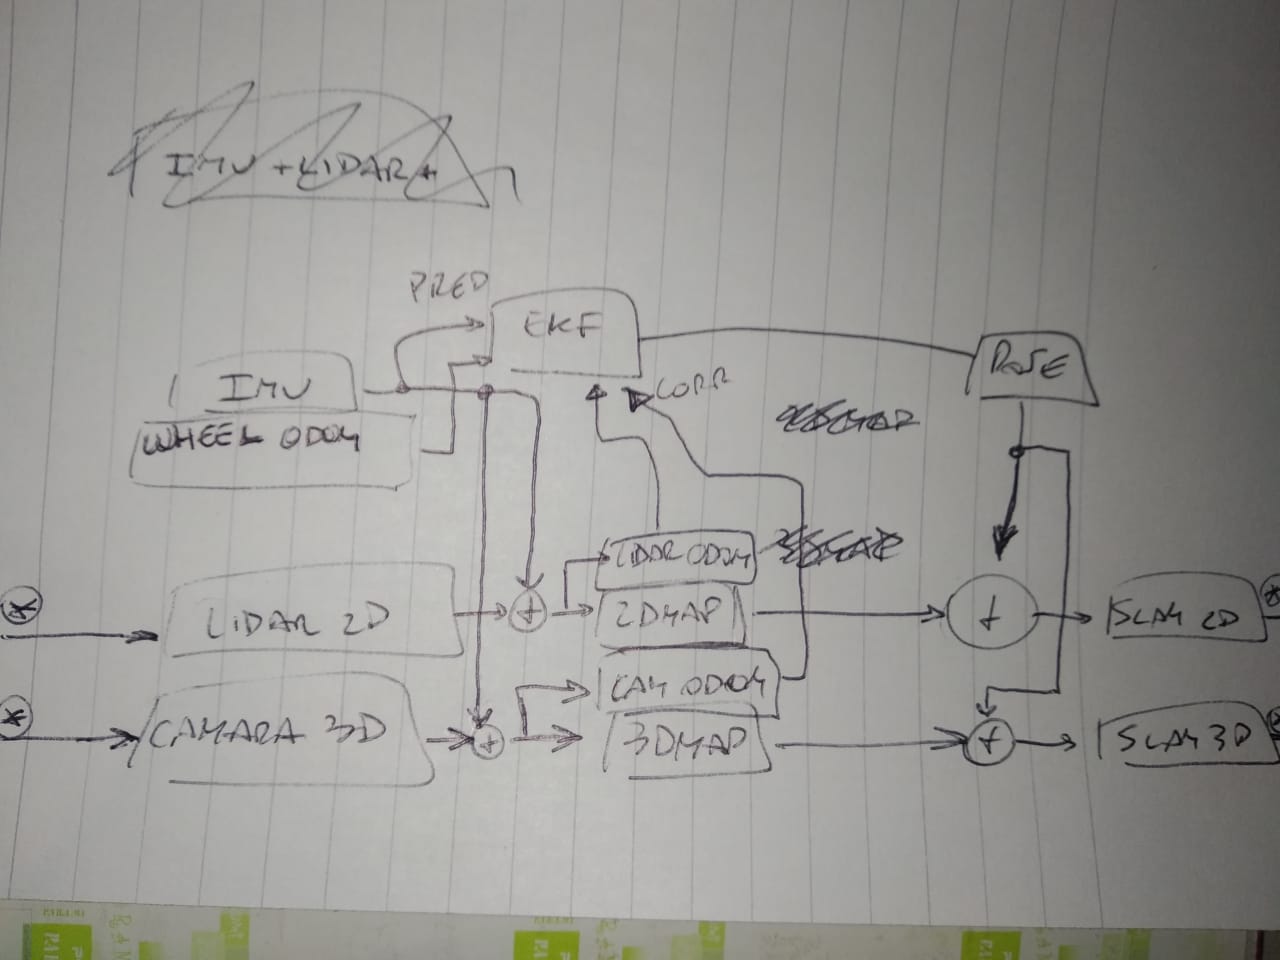 IMU + LIDAR +
PRED
EKF
POSE
IMU
CORR
WHEEL ODOM
LIDAR ODOM
LIDAR 2D
+
2DMAP
+
SLAM 2D
CAM ODOM
CAMARA 3D
+
3DMAP
+
SLAM 3D